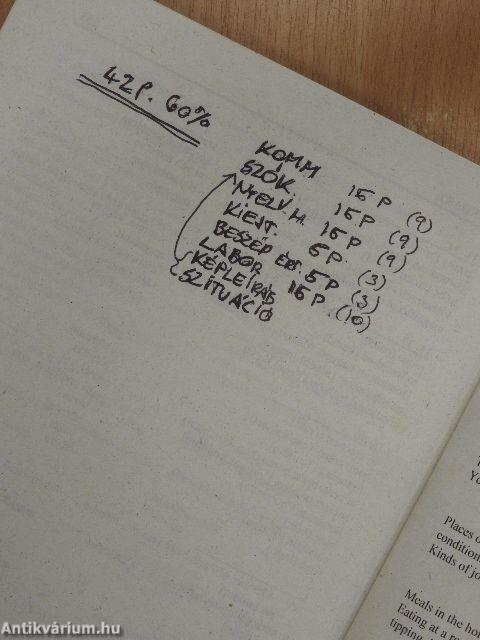 42 P. 60%
KOMM 15 P (9)
SZÓK. 15 P (9)
NYELV.H. 15 P (9)
KIEJT. 5 P. (3)
BESZÉD ÉRT. 5 P (3)
LABOR 15 P (10)
KÉPLEÍRÁS
SZITUÁCIÓ
Yo
Places o
condition
Kinds of jo
Meals in the ho
Eating at a re
tipping
Antikvárium.hu